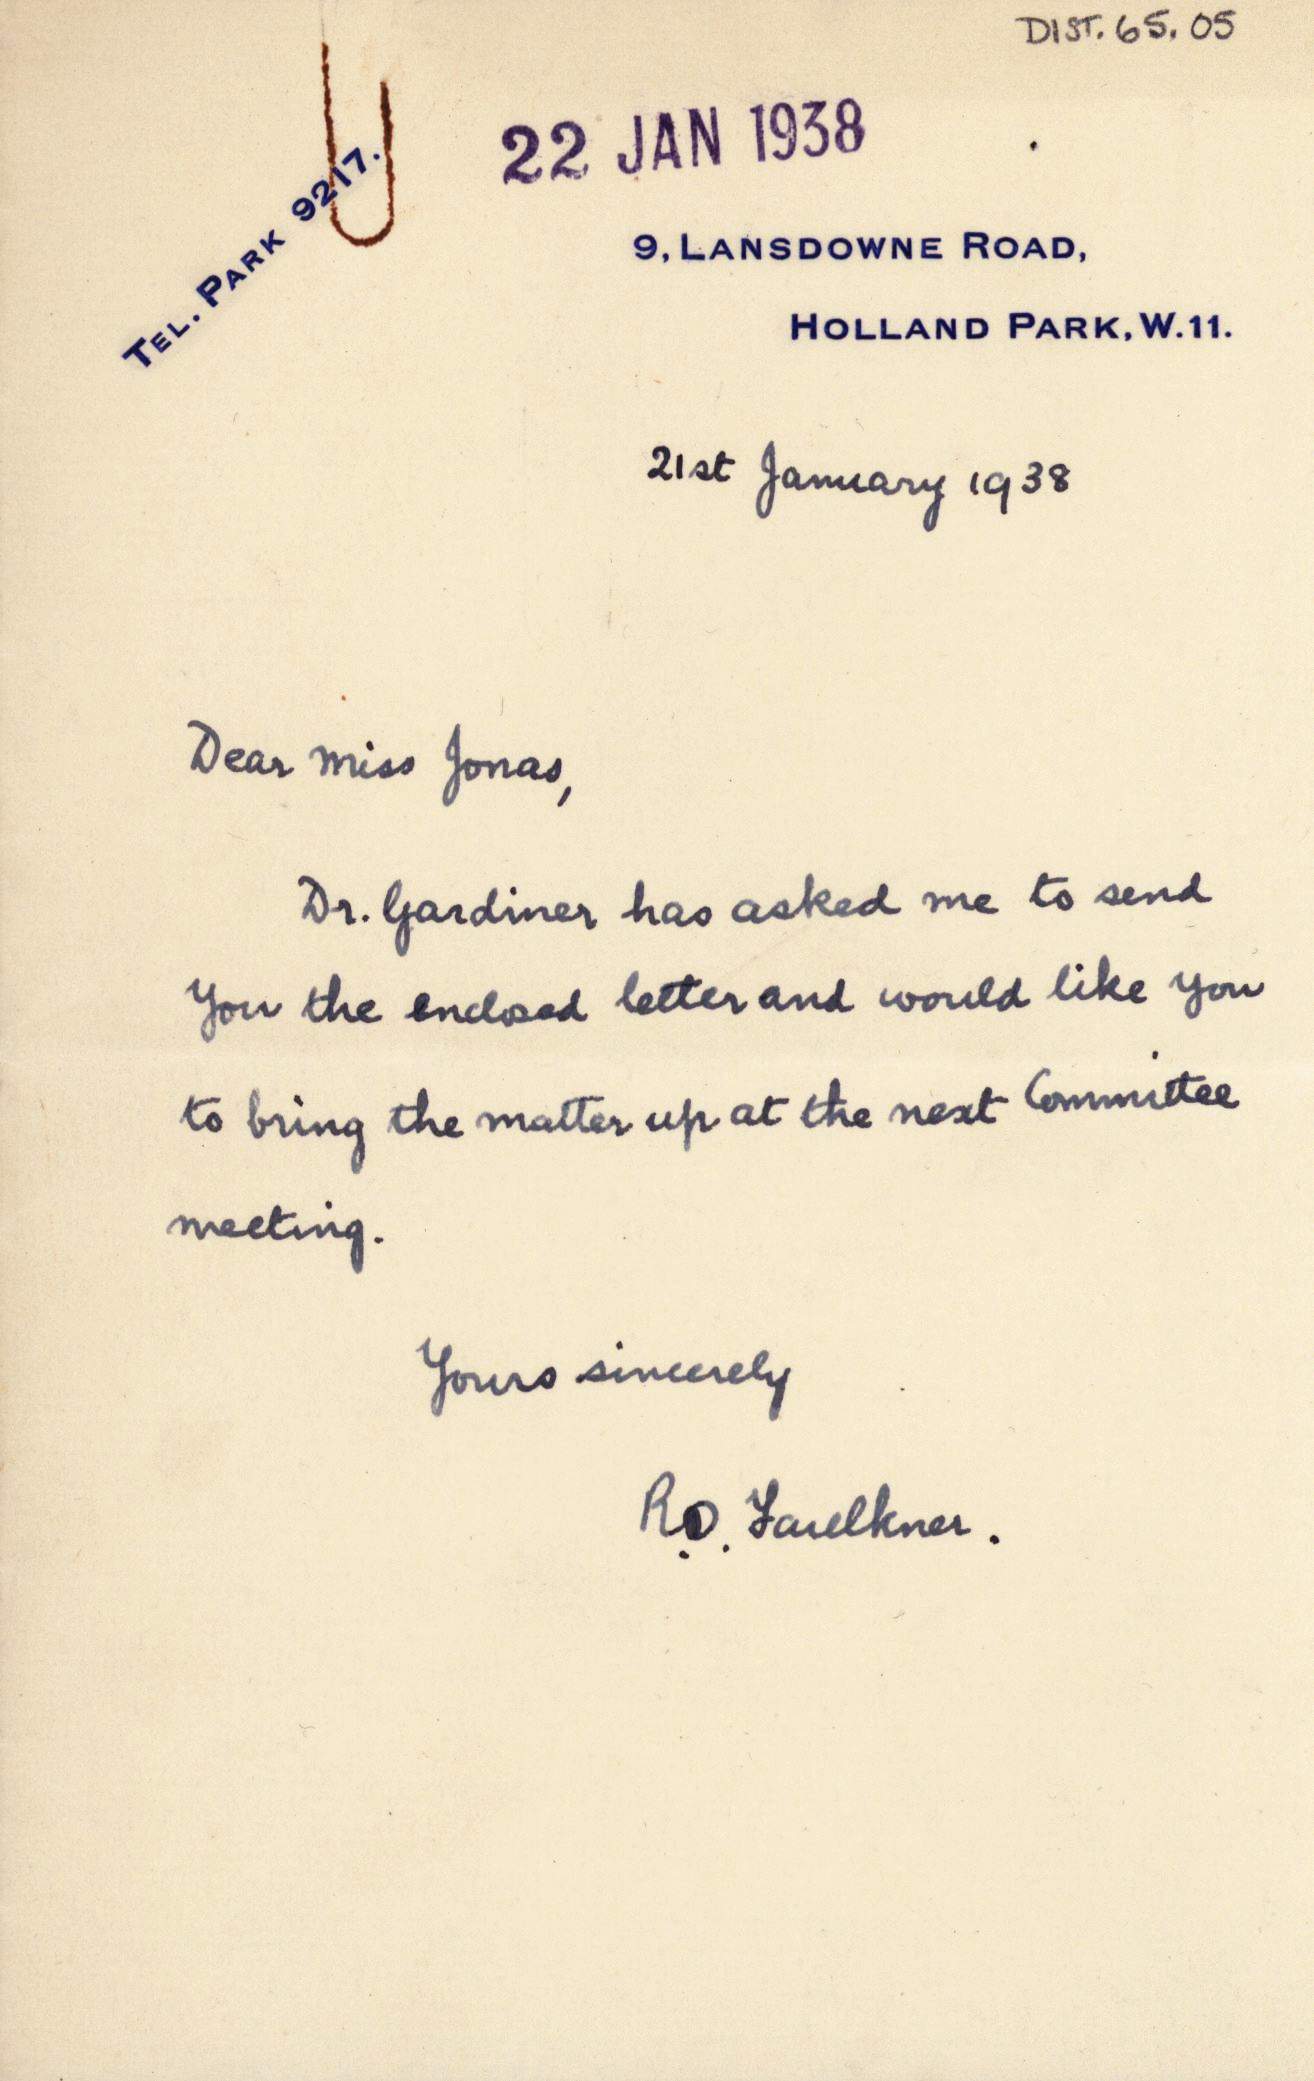 DIST. 65. 05
22 JAN 1938
TEL. PARK 9217.
9, LANSDOWNE ROAD,
HOLLAND PARK, W.11.
21st January 1938
Dear Miss Jonas,
Dr. Gardiner has asked me to send
you the enclosed letter and would like you
to bring the matter up at the next Committee
meeting.
Yours sincerely
R.O. Faulkner.